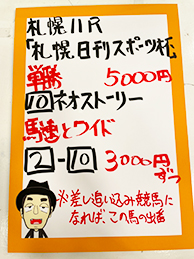 札幌11R
「札幌日刊スポーツ杯」
単勝 5000円
10ネオストーリー
馬連とワイド
2-10 3000円
ずつ
※差し追い込み競馬に
なれば、この馬の出番